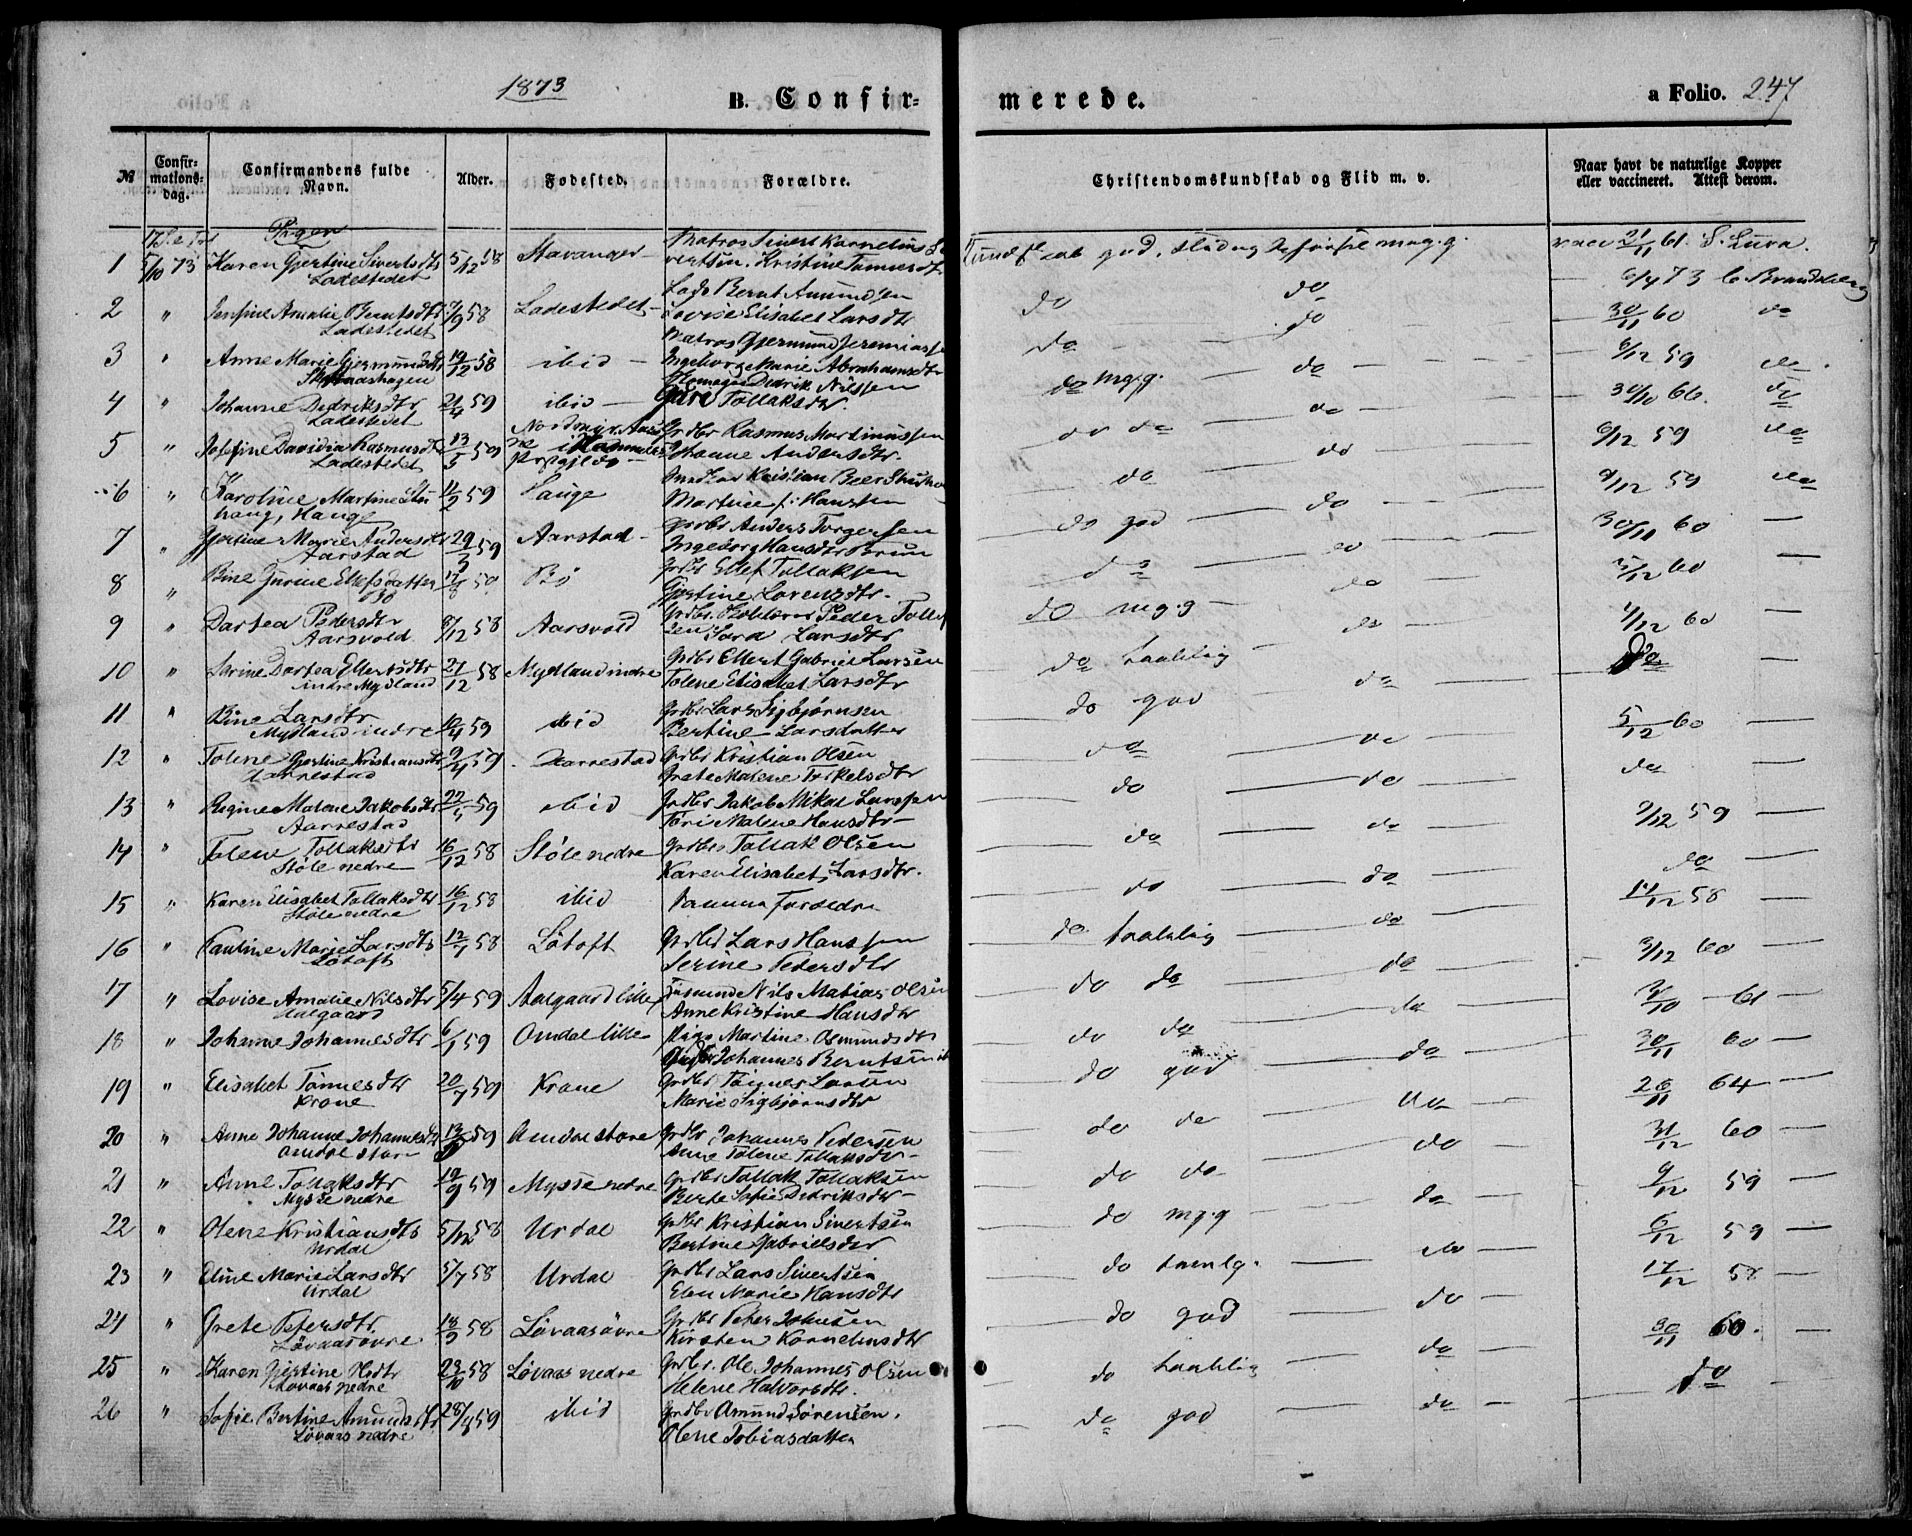 1873
B. Confir-
merede.
a Folio. 247
№
Confir-
mations-
dag.
Confirmandens fulde
Navn.
Alder.
Fødested.
Forældre.
Christendomskundskab og Flid m. v.
Naar havt de naturlige Kopper
eller vaccineret. Attest derom.
Piger
1 5/10 73 Karen Gjertine Sivertsdtr 5/12 58 Stavanger
Ladestedet
Matros Sivert Kornelius
Kristine Tønnesdtr
god
vacc 21/11 61.
2 " Amalie Berntsdtr 7/9 58 Ladestedet
Ladestedet
Bernt Amundsen
Lovise Elisabet Larsdtr
do do
6/4 73
3 " Anne Marie Gjermundsdtr 19/12 58 ibid
Matros Gjermund Jeremiassen
Ingeborg Marie Abrahamsdtr
do do
30/11 60 do
4 " Johanne Dedriksdtr 21/4 59 ibid
Ladestedet
Dedrik Nilssen
Tollaksdtr.
do mg.g. do
6/12 59 do
5 " Josefine Davidia Rasmusdtr 13/5 59
Ladestedet
Grdbr Rasmus Martinussen
Johanne Andersdtr.
do do do
30/10 66. do
6 " Karoline Martine 11/2 59 Hauge
Hauge
Kristian Beer
Martine f: Hanssen
do do
6/12 59 do
7 " Gjertine Marie Andersdtr 29/3 59 Aarstad
Aarstad
Grdbr Anders Torgersen
Ingeborg Hansdtr
do god do
9/12 59 do
8 " Bine Gurine Ellefsdatter 17/8 59 Bø
Bø
Grdbr Ellef Tollaksen
Gjertine Lorensdtr.
do do
30/11 60
9 " Dartea Pedersdtr 8/12 58 Aarsvold
Aarsvold
Peder
Sara Larsdtr
do mg.g do
5/12 60
10 " Serine Dortea Ellertsdtr 27/12 58 Mydland indre
indre Mydland
Grdbr Ellert Gabriel Larsen
Tolene Elisabet Larsdtr
do taalelig do
1/12 60
do
11 " Bine Larsdtr 10/4 59 ibid
Mydland indre
Grdbr Lars Sigbjørnsen
Bertine Larsdatter
do god do
5/12 60
12 " Tolene Gjertine Kristiansdtr 9/4 59 Aarrestad
Aarrestad
Grdbr Kristian Olsen
Grete Malene Terkelsdtr
do do
do
13 " Regine Malene Jakobsdtr 22/5 59 ibid
Aarrestad
Grdbr Jakob Mikal Larssen
Tori Malene Hansdtr
do do
9/12 59
14 " Tolene Tollaksdtr 16/12 58 Støle nedre
Støle nedre
Grdbr Tollak Olsen
Karen Elisabet Larsdtr.
do do
do
15 " Karen Elisabet Tollaksdtr 16/12 58 ibid
Støle nedre
samme Forældre
do do
14/12 58
16 " Pauline Marie Larsdtr 12/7 58 Løtoft
Løtoft
Grdbr Lars Hanssen
Serine Pedersdtr
do taalelig do
9/12 60
17 " Lovise Amalie Nilsdtr 5/4 59 Aalgaard lille
Aalgaard
Husmand Nils Matias Olsen
Anne Kristine Hansdtr
do do do
3/10 61
18 " Johanne Johannesdtr 6/1 59 Omdal lille
Pige Martine Osmundsdtr
Johannes Berntsen
do do do
30/11 60
19 " Elisabet Tønnesdtr 20/7 59 Krone
Krone
Grdbr. Tønnes Larsen
Marie Sigbjørnsdtr
do god do
26/11 64
20 " Anne Johanne Johannesdtr 13/9 59 Omdal store
Omdal store
Grdbr Johannes Pedersen
Anne Tolene Tollaksdtr
do do do
31/12 60
21 " Anne Tollaksdtr 19/9 59 Mysse nedre
Mysse nedre
Grdbr Tollak Tollaksen
Berte Sofie Dedriksdtr
do do do
9/12 59
22 " Olene Kristiansdtr 5/12 58 Urdal
Urdal
Grdbr Kristian Sivertsen
Bertine Gabrielsdtr
do mg.g do
6/12 59
23 " Eline Marie Larsdtr 5/7 58 Urdal
Urdal
Grdbr Lars Sivertsen
Elen Marie Hansdtr
do taalelg. do
17/12 58
24 " Grete Petersdtr 18/9 58 Løvaas øvre
Løvaas øvre
Grdbr Peter
Kirsten Korneliusdtr
do god do
30/11 60.
25 " Karen Gjertine Olsdtr 23/10 58 Løvaas nedre
Løvaas nedre
Grdbr. Ole Johannes Olsen
Helene Halvorsdtr.
do taalelig do
do
26 " Sofie Bertine Amundsdtr 28/4 59 ibid
Løvaas nedre
Grdbr Amund Sørensen.
Olene Tobiasdatter
do god do